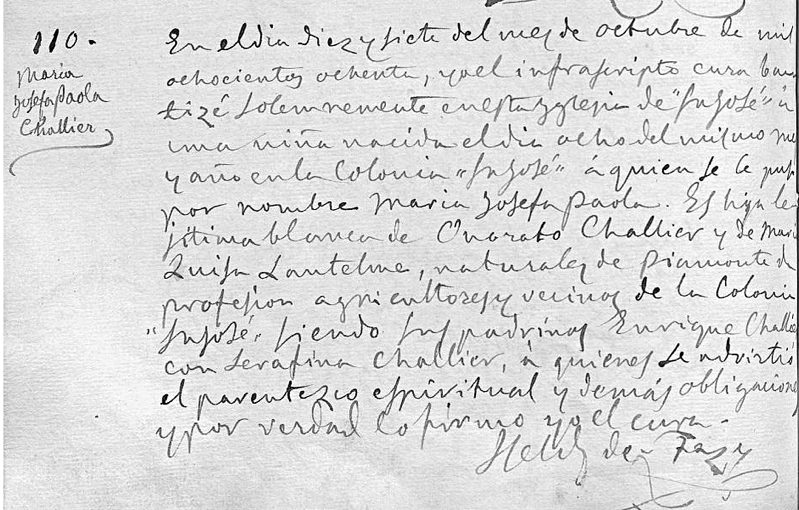 110.
Maria
Josefa Paola
Challier
En el dia diez y siete del mes de octubre de mil
ochocientos ochenta, yo el infrascripto cura bau
tizé solemnemente en esta Yglesia de "Sn José" á
una niña nacida el dia ocho del mismo mes
y año en la Colonia "Sn José" á quien se le puso
por nombre Maria Josefa Paola. Es hija le
jítima blanca de Onorato Challier y de Maria
Luisa Lantelme, naturales de Piamonte de
profesion agricultores y vecinos de la Colonia
"Sn José" siendo sus padrinos Enrique Challier
con Serafina Challier, á quienes se advirtió
el parentezco espiritual y demás obligaciones
y por verdad lo firmo yo el cura.
de